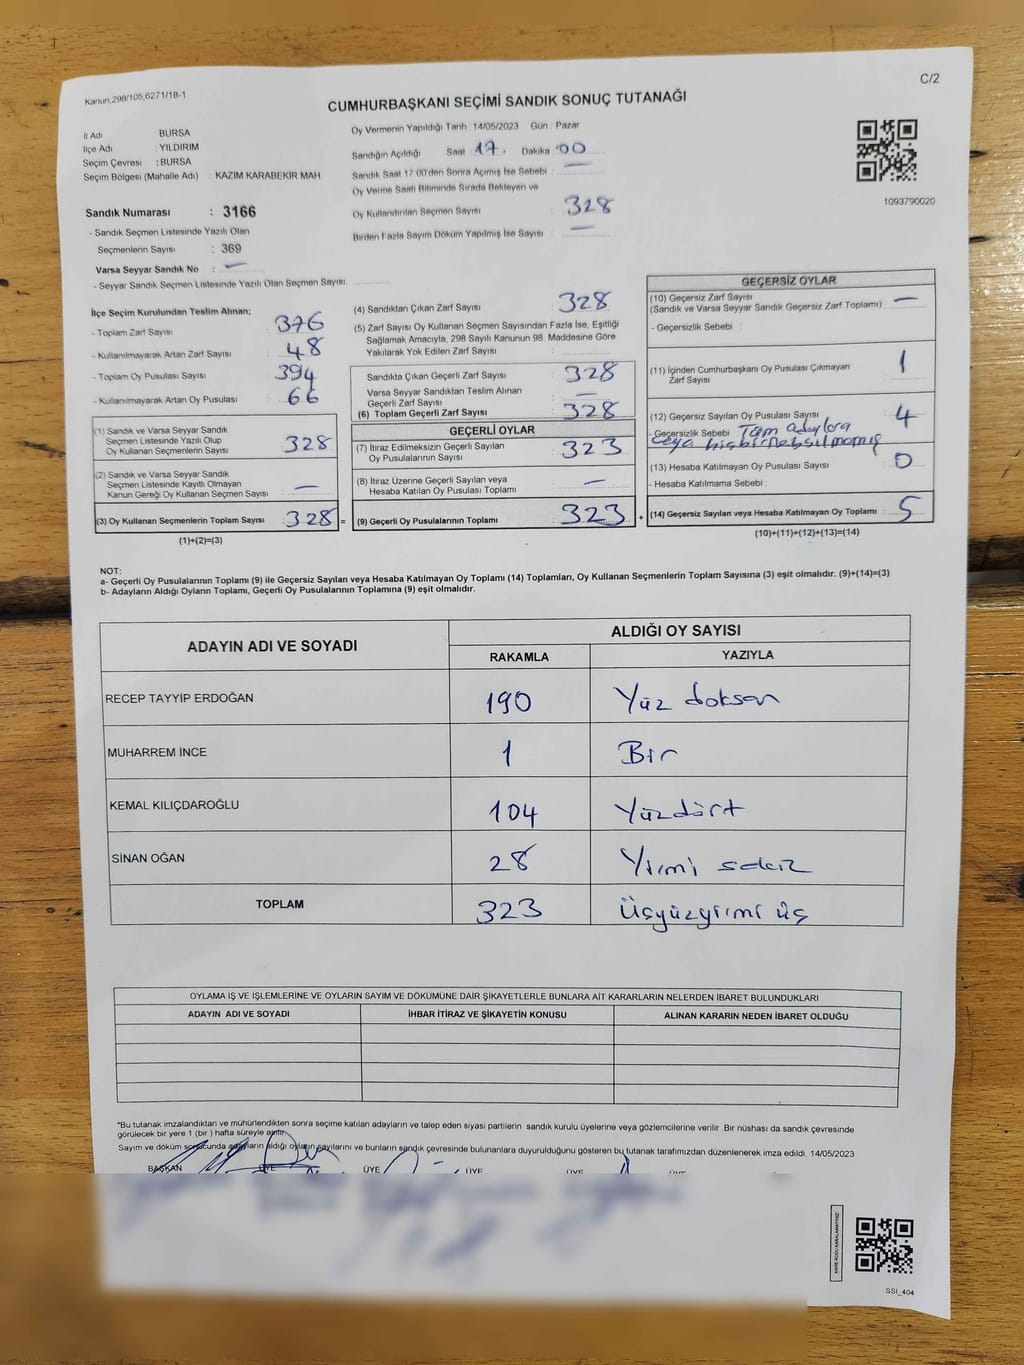 Kanun,298/105,6271/18-1
C/2
CUMHURBAŞKANI SEÇİMİ SANDIK SONUÇ TUTANAĞI
İl Adı : BURSA
İlçe Adı : YILDIRIM
Seçim Çevresi : BURSA
Seçim Bölgesi (Mahalle Adı) : KAZIM KARABEKİR MAH
Sandık Numarası : 3166
- Sandık Seçmen Listesinde Yazılı Olan
Seçmenlerin Sayısı : 369
Varsa Seyyar Sandık No : —
- Seyyar Sandık Seçmen Listesinde Yazılı Olan Seçmen Sayısı:
Oy Vermenin Yapıldığı Tarih :14/05/2023 Gün : Pazar
Sandığın Açıldığı Saat : 17. Dakika : 00
Sandık Saat 17.00'den Sonra Açımış İse Sebebi : —
Oy Verme Saati Bitiminde Sırada Bekleyen ve
Oy Kullandırılan Seçmen Sayısı : 328
Birden Fazla Sayım Döküm Yapılmış İse Sayısı : —
1093790020
İlçe Seçim Kurulundan Teslim Alınan;
- Toplam Zarf Sayısı : 376
- Kullanılmayarak Artan Zarf Sayısı : 48
- Toplam Oy Pusulası Sayısı : 394
- Kullanılmayarak Artan Oy Pusulası : 66
(1) Sandık ve Varsa Seyyar Sandık
Seçmen Listesinde Yazılı Olup
Oy Kullanan Seçmenlerin Sayısı : 328
(2) Sandık ve Varsa Seyyar Sandık
Seçmen Listesinde Kayıtlı Olmayan
Kanun Gereği Oy Kullanan Seçmen Sayısı : —
(3) Oy Kullanan Seçmenlerin Toplam Sayısı : 328 =
(1)+(2)=(3)
(4) Sandıktan Çıkan Zarf Sayısı : 328
(5) Zarf Sayısı Oy Kullanan Seçmen Sayısından Fazla İse, Eşitliği
Sağlamak Amacıyla, 298 Sayılı Kanunun 98. Maddesine Göre
Yakılarak Yok Edilen Zarf Sayısı :
Sandıkta Çıkan Geçerli Zarf Sayısı : 328
Varsa Seyyar Sandıktan Teslim Alınan
Geçerli Zarf Sayısı : —
(6) Toplam Geçerli Zarf Sayısı : 328
GEÇERLİ OYLAR
(7) İtiraz Edilmeksizin Geçerli Sayılan
Oy Pusulalarının Sayısı : 323
(8) İtiraz Üzerine Geçerli Sayılan veya
Hesaba Katılan Oy Pusulası Toplamı : —
(9) Geçerli Oy Pusulalarının Toplamı : 323 +
GEÇERSİZ OYLAR
(10) Geçersiz Zarf Sayısı
(Sandık ve Varsa Seyyar Sandık Geçersiz Zarf Toplamı) : —
- Geçersizlik Sebebi :
(11) İçinden Cumhurbaşkanı Oy Pusulası Çıkmayan
Zarf Sayısı : 1
(12) Geçersiz Sayılan Oy Pusulası Sayısı : 4
- Geçersizlik Sebebi : Tüm adaylara
veya hiçbirine basılmamış
(13) Hesaba Katılmayan Oy Pusulası Sayısı : 0
- Hesaba Katılmama Sebebi :
(14) Geçersiz Sayılan veya Hesaba Katılmayan Oy Toplamı : 5
(10)+(11)+(12)+(13)=(14)
NOT:
a- Geçerli Oy Pusulalarının Toplamı (9) ile Geçersiz Sayılan veya Hesaba Katılmayan Oy Toplamı (14) Toplamları, Oy Kullanan Seçmenlerin Toplam Sayısına (3) eşit olmalıdır. (9)+(14)=(3)
b- Adayların Aldığı Oyların Toplamı, Geçerli Oy Pusulalarının Toplamına (9) eşit olmalıdır.
ADAYIN ADI VE SOYADI
ALDIĞI OY SAYISI
RAKAMLA YAZIYLA
RECEP TAYYİP ERDOĞAN 190 Yüz doksan
MUHARREM İNCE 1 Bir
KEMAL KILIÇDAROĞLU 104 Yüzdört
SİNAN OĞAN 28 Yirmi sekiz
TOPLAM 323 Üçyüzyirmi üç
OYLAMA İŞ VE İŞLEMLERİNE VE OYLARIN SAYIM VE DÖKÜMÜNE DAİR ŞİKAYETLERLE BUNLARA AİT KARARLARIN NELERDEN İBARET BULUNDUKLARI
ADAYIN ADI VE SOYADI İHBAR İTİRAZ VE ŞİKAYETİN KONUSU ALINAN KARARIN NEDEN İBARET OLDUĞU
*Bu tutanak imzalandıktan ve mühürlendikten sonra seçime katılan adayların ve talep eden siyasi partilerin sandık kurulu üyelerine veya gözlemcilerine verilir. Bir nüshası da sandık çevresinde
görülecek bir yere 1 (bir) hafta süreyle asılır.
Sayım ve döküm sonucunda adayların aldığı oyların sayılarını ve bunların sandık çevresinde bulunanlara duyurulduğunu gösteren bu tutanak tarafımızdan düzenlenerek imza edildi. 14/05/2023
BAŞKAN ÜYE ÜYE ÜYE ÜYE ÜYE
KARE KODU KARALAMAYINIZ!
SSİ_404